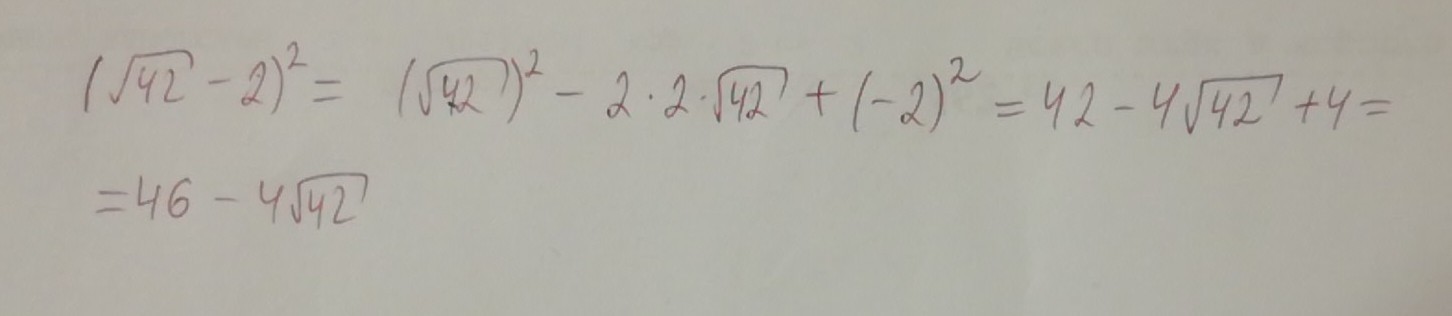 (√42 − 2)² = (√42)² − 2·2·√42 + (−2)² = 42 − 4√42 + 4 =
= 46 − 4√42